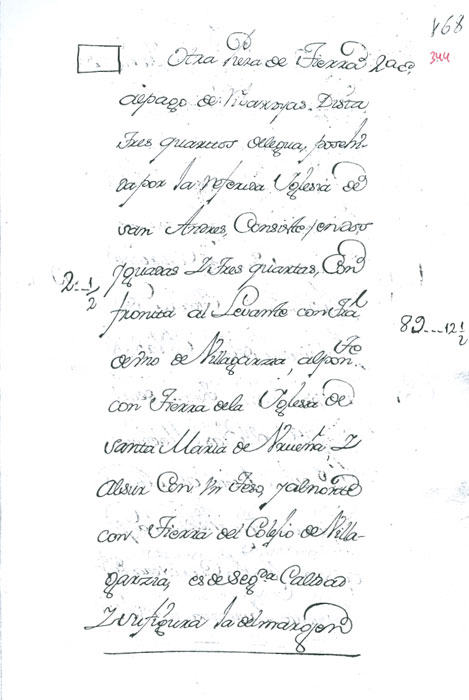 168
344
Otra Pieza de Tierra
de pago de Vivarojas. Dista
tres quartos de legua, posehi-
da por la referida Yglesia de
san Andres, Consiste, en dos
yguadas Y tres quartas, Con
2--1/2
fronita al Levante con
89---12 1/2
de Villagarzia, alpon.te
con Tierra dela Yglesia de
santa Maria de Vrueña, Y
alsur Con Vn Teso, y alnorte
con Tierra del Colejio de Villa-
garzia, es de seg.da Calidad
Y sufigura la del margen